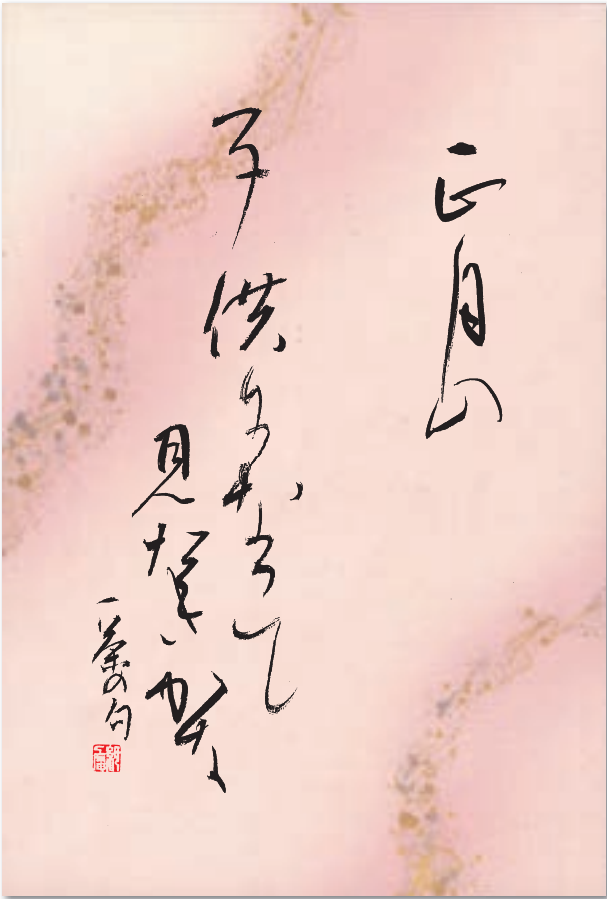 正月の
子供に成て
見たき哉
一茶の句